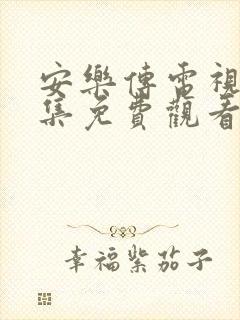 安樂傳電視
集免費觀看
幸福紫茄子